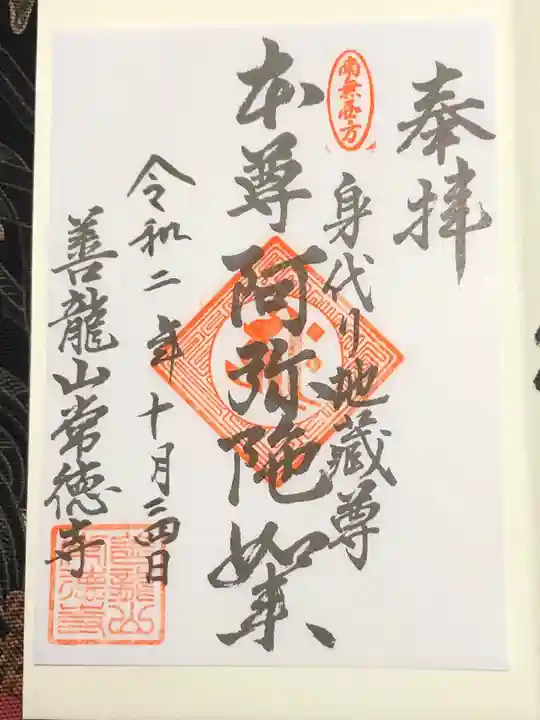 奉拝
南無西方
身代り地蔵尊
本尊 阿弥陀如来
令和二年十月二四日
善龍山常徳寺